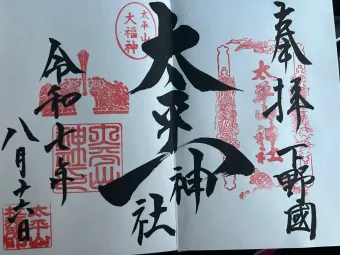 奉拝
下野國
太平山神社
太平山
大福神
太平神社
令和七年
八月十六日